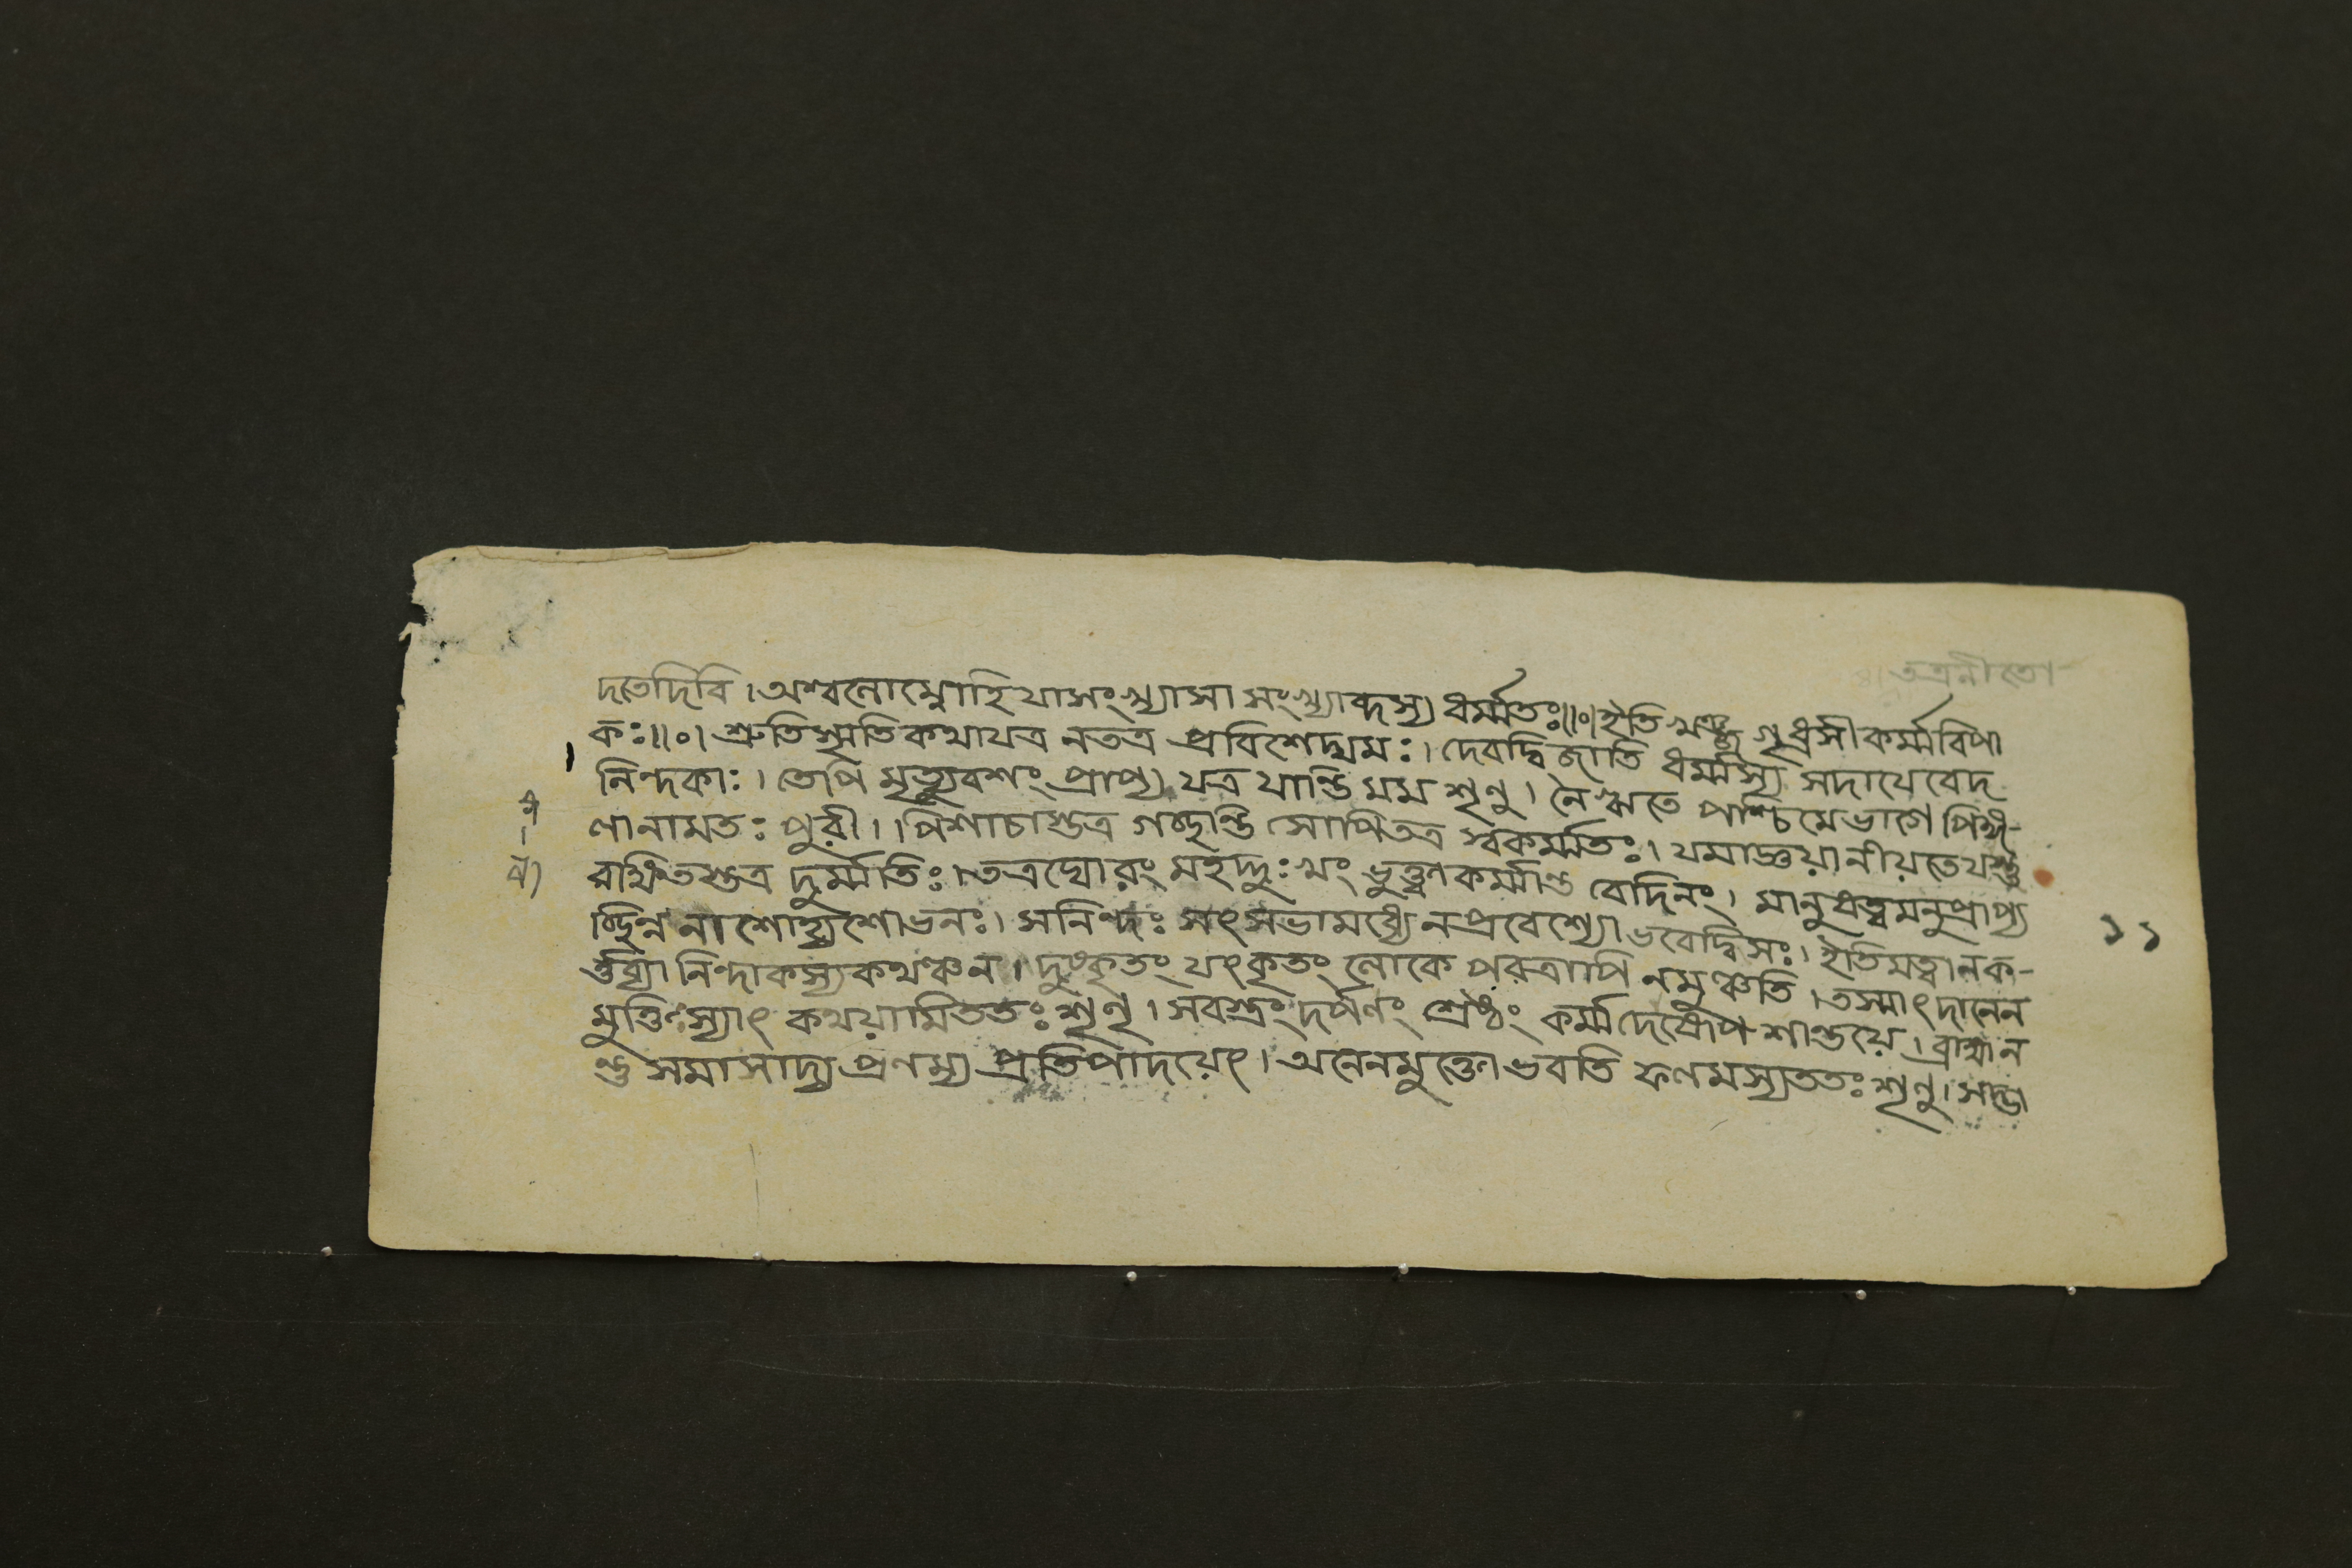 তত্রনীতো-
দতেদিবি। অশ্বলোম্নোহি যাসংখ্যাসা সংখ্যাব্দস্য ধর্ম্মতঃ॥০॥ইতি খঞ্জ গৃধ্রসী কর্ম্মবিপা
কঃ॥০॥ শ্রুতিস্মৃতিকথাযত্র নতত্র প্রবিশেদ্যমঃ। দেবদ্বিজাতি ধর্ম্মস্য সদাযেবেদ
নিন্দকাঃ। তেপি মৃত্যুবশং প্রাপ্য যত্র যান্তি মম শৃণু। নৈঋতে পশ্চিমেভাগে পিঙ্গ-
লানামতঃ পুরী।। পিশাচাস্তত্র গচ্ছন্তি সোপিতত্র স্বকর্ম্মতিঃ। যমাজ্ঞয়ানীয়তেযস্তু
রাক্ষিতস্তত্র দুর্ম্মতিঃ। তত্রঘোরং মহদ্দুঃখং ভুক্ত্বাকর্ম্মান্ত বেদিনং। মানুষত্বমনুপ্রাপ্য
চ্ছিন্ন নাশোহ্যশোভনঃ। সনিন্দঃ সৎসভামধ্যেনপ্রবেশ্যো ভবেদ্বিসঃ। ইতিমত্বানক-
র্ত্তব্যা নিন্দাকস্যকথঞ্চন। দুষ্কৃতং যৎকৃতং লোকে পরত্রাপি নমুঞ্চতি। তস্মাৎ দানেন
মুক্তিঃ স্যাৎ কথয়ামিততঃ শৃণু। সবস্ত্রং দর্পণং শ্রেষ্ঠং কর্ম্মদেহোপ শান্তয়ে। ব্রাহ্মন
ন্তু সমাসাদ্য প্রণম্য প্রতিপাদয়েৎ। অনেনমুক্তো ভবতি ফলমস্যততঃ শৃণু। সদ্ভা
১১